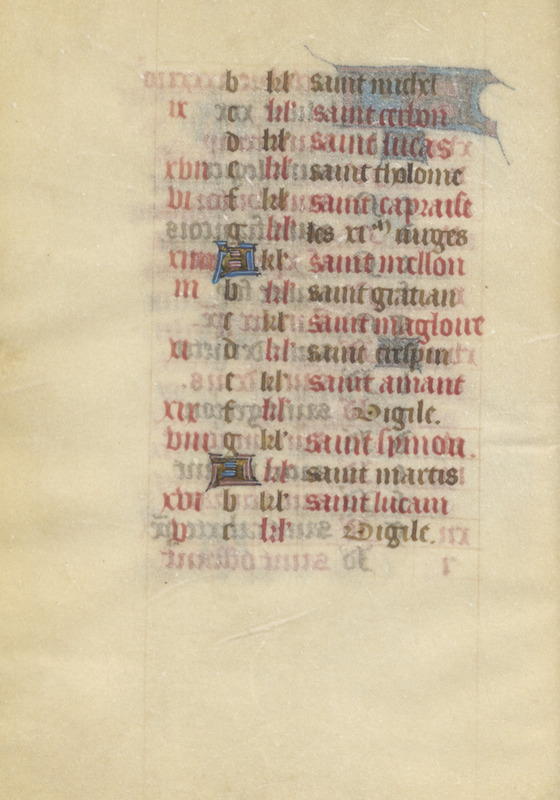 b kl' saint michel
ix c kl' saint cerbon
d kl' saint lucas
xvii e kl' saint tholome
vi f kl' saint capraise
g kl' les xi m vierges
A kl' saint mellon
iii b kl' saint gratian
c kl' saint magloire
xi d kl' saint crespin
e kl' saint amant
xix f kl' Vigile.
viii g kl' saint symon.
A kl' saint martis
xvi b kl' saint lucain
v c kl' Vigile.